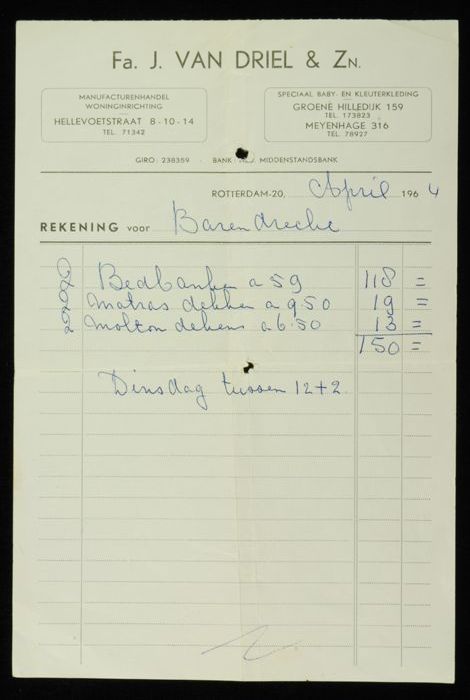 Fa. J. VAN DRIEL & ZN.
MANUFACTURENHANDEL
WONINGINRICHTING
HELLEVOETSTRAAT 8-10-14
TEL. 71342
SPECIAAL BABY- EN KLEUTERKLEDING
GROENE HILLEDIJK 159
TEL. 173823
MEYENHAGE 316
TEL. 78927
GIRO: 238359 - BANK: NED. MIDDENSTANDSBANK
ROTTERDAM-20, April 1964
REKENING voor Barendrecht
2 Bedbanken a 59 118 =
2 Matras dekken a 9.50 19 =
2 Molton dekens a 6.50 13 =
150 =
Dinsdag tussen 12+2